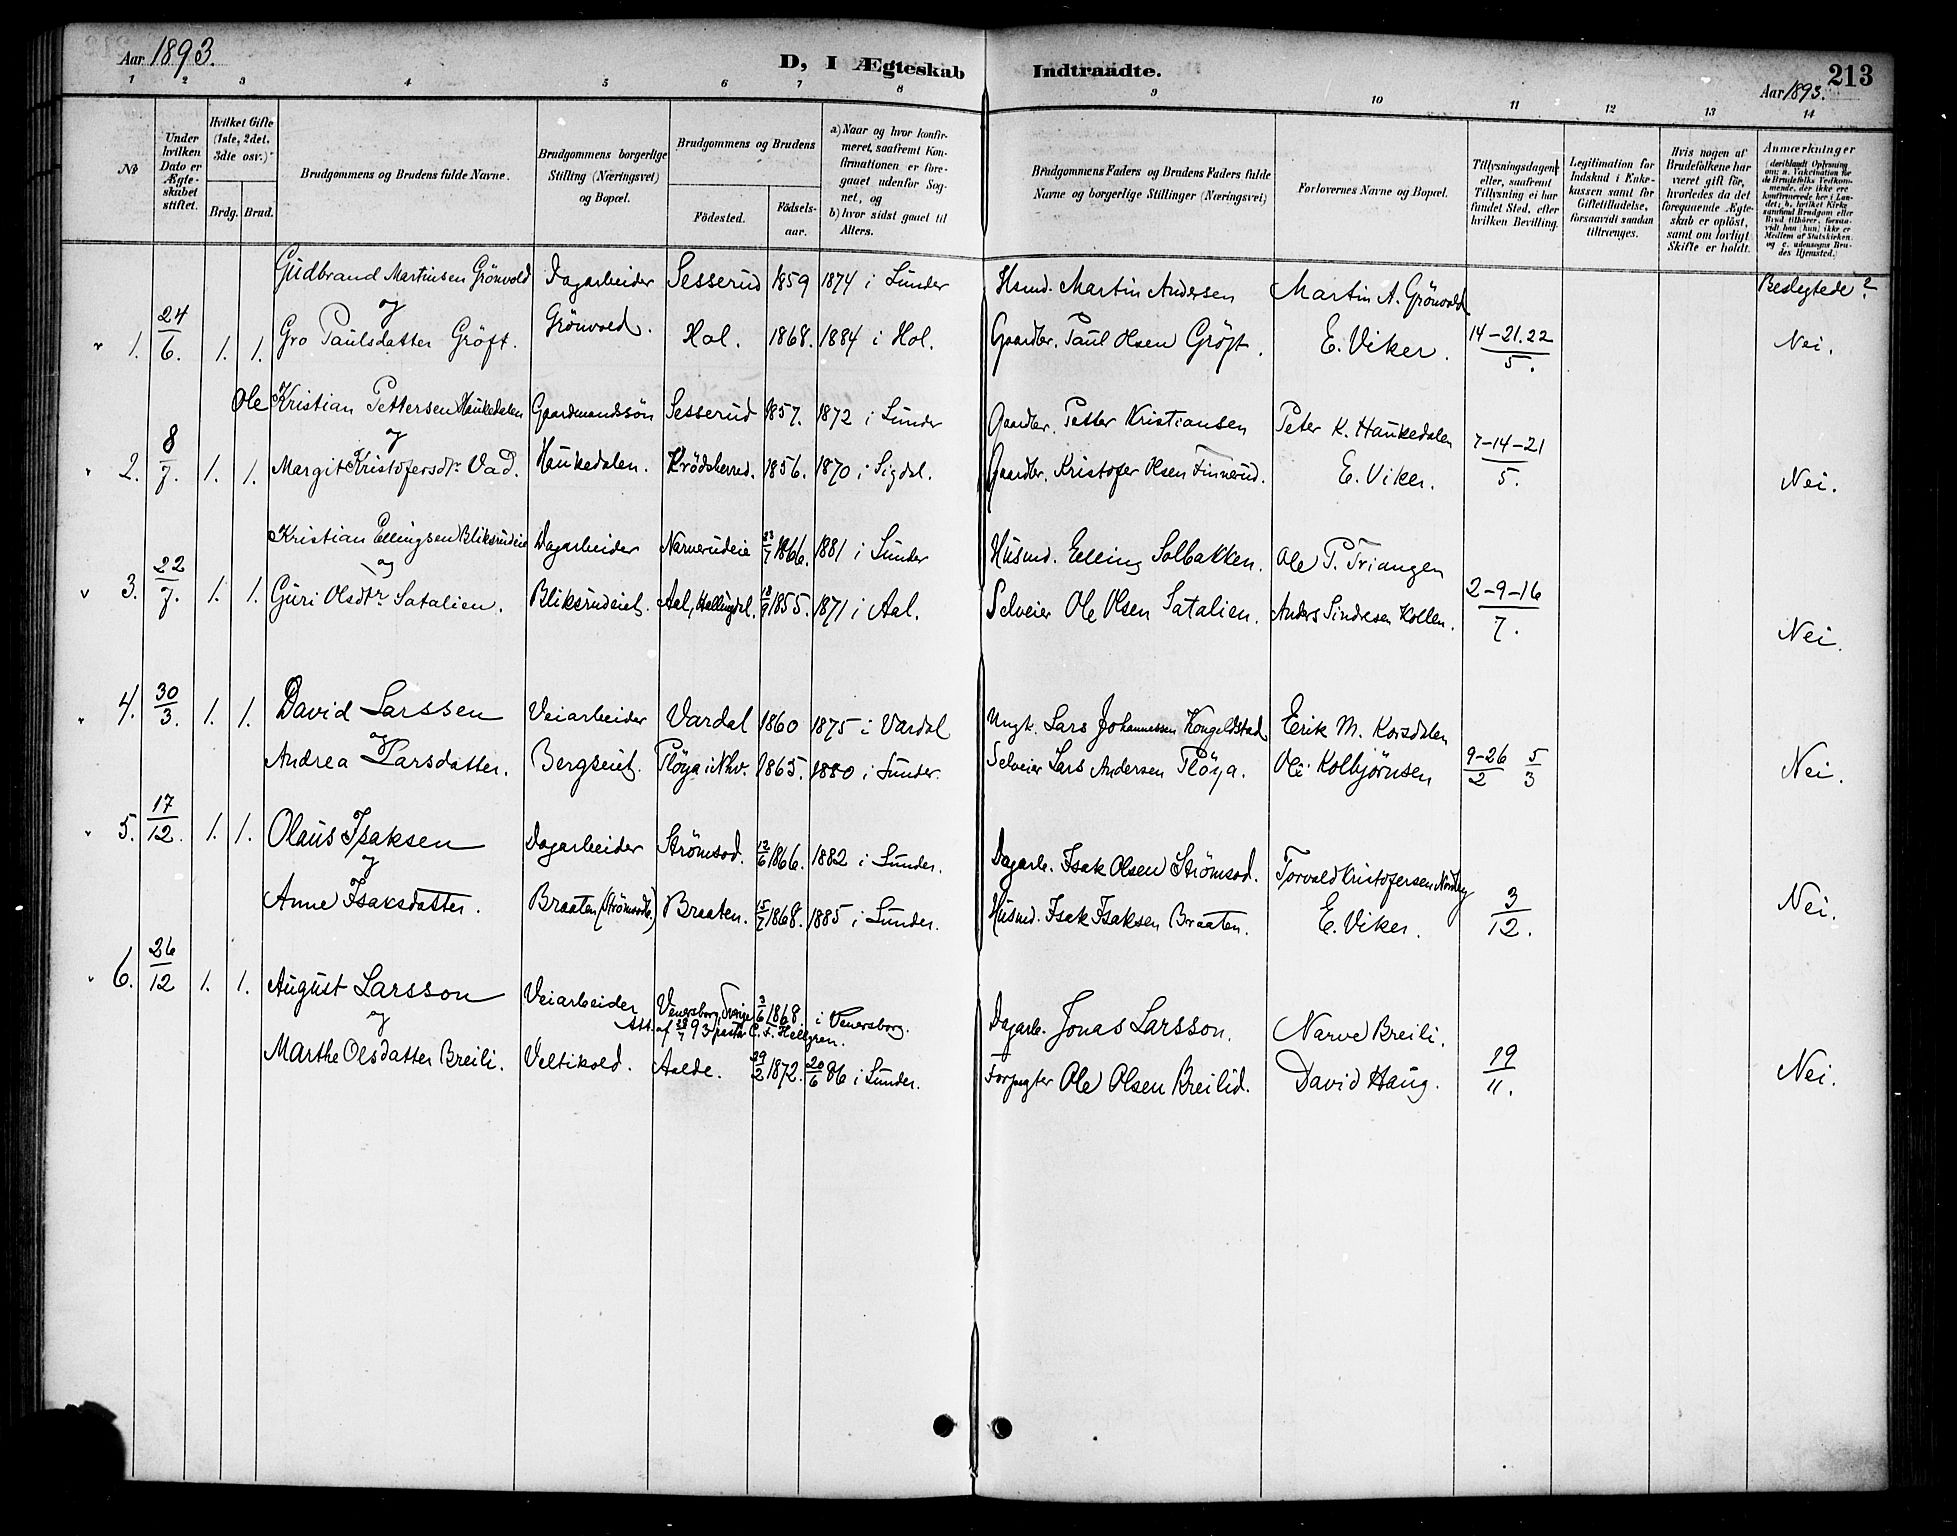 Aar 1893.
D, I Ægteskab Indtraadte.
213
Aar 1893.
1 2 3 4 5 6 7 8 9 10 11 12 13 14
No
Under hvilken Dato er Ægteskabet stiftet.
Hvilket Gifte (1ste, 2det, 3die osv.)
Brdg. Brud.
Brudgommens og Brudens fulde Navne.
Brudgommens borgerlige Stilling (Næringsvei) og Bopæl.
Brudgommens og Brudens
Fødested.
Fødselsaar.
a) Naar og hvor konfirmeret, saafremt Konfirmationen er foregaaet udenfor Sognet, og
b) hvor sidst gaaet til Alters.
Brudgommens Faders og Brudens Faders fulde Navne og borgerlige Stillinger (Næringsvei)
Forlovernes Navne og Bopæl.
Tillysningsdagen, eller, saafremt Tillysning ei har fundet Sted, efter hvilken Bevilling.
Legitimation for Indskud i Enkekassen samt for Giftetilladelse, forsaavidt saadan tiltrænges.
Hvis nogen af Brudefolkene har været gift før, hvorledes da det foregaaende Ægteskab er opløst, samt om lovligt Skifte er holdt.
Anmærkninger
Gudbrand Martinsen Grönvold Dagarbeider Sesserud 1859 1874 i Lunder Husmd. Martin Andersen Martin A. Grönvold Beslegtede?
og Grönvold.
1. 24/6. 1. 1. Gro Paulsdatter Gröft. Hol. 1868. 1884 i Hol. Gaardbr. Paul Olsen Gröft. E. Viker. 14-21.22/5. Nei.
Ole Kristian Pettersen Haukedalen Gaardmandssön Sesserud 1857. 1872 i Lunder Gaardbr. Petter Kristiansen Peter K. Haukedalen
og
2. 8/7. 1. 1. Margit Kristofersdtr. Vad. Haukedalen. Krödsherred. 1856. 1870 i Sigdal. Gaardbr. Kristofer Olsen Finnerud. E. Viker. 7-14-21/5. Nei.
Kristian Ellingsen Bliksrudeie Dagarbeider Narverudeie 23/7 1866. 1881 i Lunder Husmd. Elling Solbakken. Ole P. Triangen
og
3. 22/7. 1. 1. Guri Olsdtr Satalien. Bliksrudeiet. Aal, Hallingdal. 18/9 1855. 1871 i Aal. Selveier Ole Olsen Satalien. Anders Sindresen Kollen. 2-9-16/7. Nei.
4. 30/3. 1. 1. David Larssen Veiarbeider Vardal 1860 1875 i Vardal Ungk. Lars Johannessen Kongeldstad Erik M. Korsdalen
og
Andrea Larsdatter. Bergseiet. Plöya i Nhv. 1865. 1880 i Lunder. Selveier Lars Andersen Plöya. Ole Kolbjörnsen 9-26/2 5/3 Nei.
5. 17/12. 1. 1. Olaus Isaksen Dagarbeider Strömsod. 12/6 1866. 1882 i Lunder. Dagarb. Isak Olsen Strömsod. Torvald Kristofersen Nordby
og
Anne Isaksdatter. Braaten (Strömsodb.) Braaten. 5/7 1868. 1885 i Lunder. Husmd. Isak Isaksen Braaten. E. Viker. 3/12. Nei.
6. 26/12 1. 1. August Larsson Veiarbeider Venersborg, Sverige 3/6 1868. i Venersborg. Dagarb. Jonas Larsson. Narve Breili.
og Att. af 28/7 93 pastor C. F. Hellgren.
Marthe Olsdatter Breili. Veltikold. Aalde. 29/2 1872. 20/6 86 i Lunder. Forpagter Ole Olsen Breilid. David Haug. 19/11. Nei.